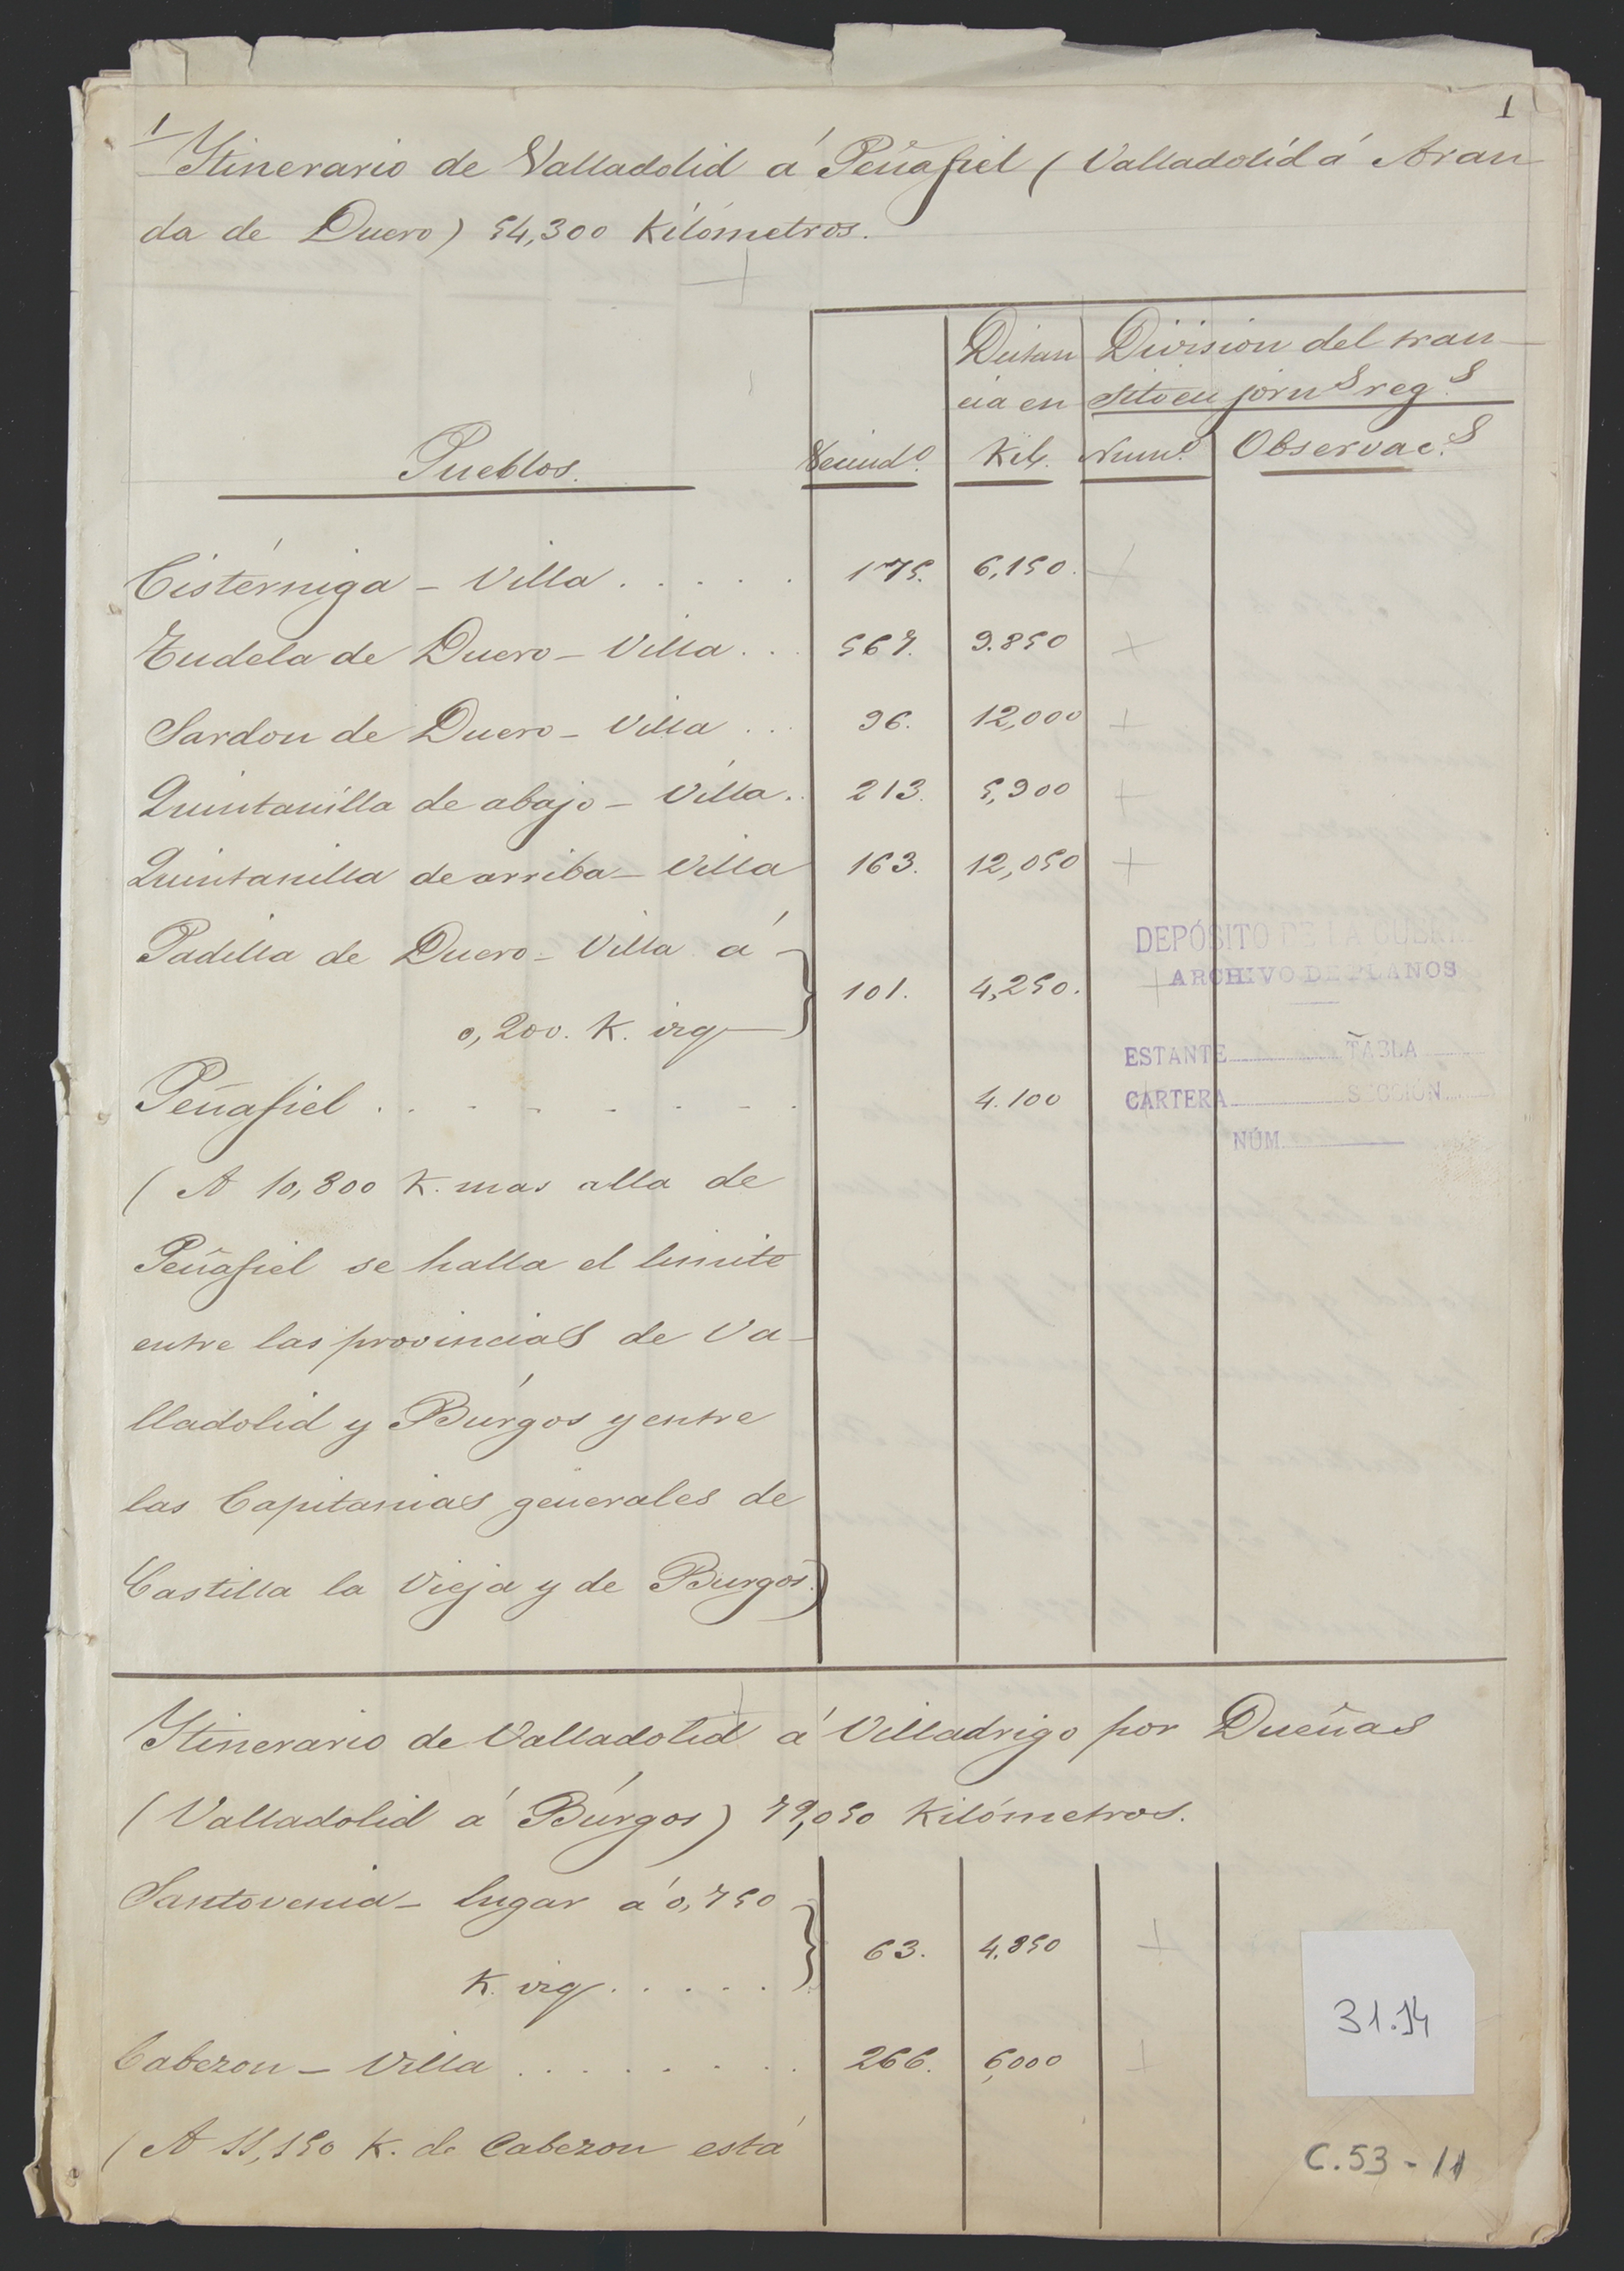 1
1
Itinerario de Valladolid á Peñafiel (Valladolid á Aran
da de Duero) 54,300 Kilómetros.
Pueblos. Vecind.º Distan
cia en
Kil. Division del tran-
sito en jorn.s reg.s
Num.º Observac.s
Cistérniga - Villa . . . . . 175. 6,150.
Tudela de Duero - Villa . . . 567. 9.850
Sardon de Duero - Villa . . . 96. 12,000
Quintanilla de abajo - Villa . . 213. 5,900
Quintanilla de arriba - Villa 163. 12,050
Padilla de Duero - Villa á
0,200. K. izq 101. 4,250.
Peñafiel . . . . . . . . 4.100
(A 10,800 K. mas alla de
Peñafiel se halla el limite
entre las provincias de Va-
lladolid y Búrgos y entre
las Capitanias generales de
Castilla la Vieja y de Burgos.)
DEPÓSITO DE LA GUERRA
ARCHIVO DE PLANOS
ESTANTE TABLA
CARTERA SECCIÓN
NÚM.
Itinerario de Valladolid á Villadrigo por Dueñas
(Valladolid á Búrgos) 79,050 Kilómetros.
Santovenia - lugar á 0,750
K. izq . . . . . 63. 4,850
Cabezon - Villa . . . . . . . . 266. 6,000
(A 11,150 K. de Cabezon está
31.14
C.53-11